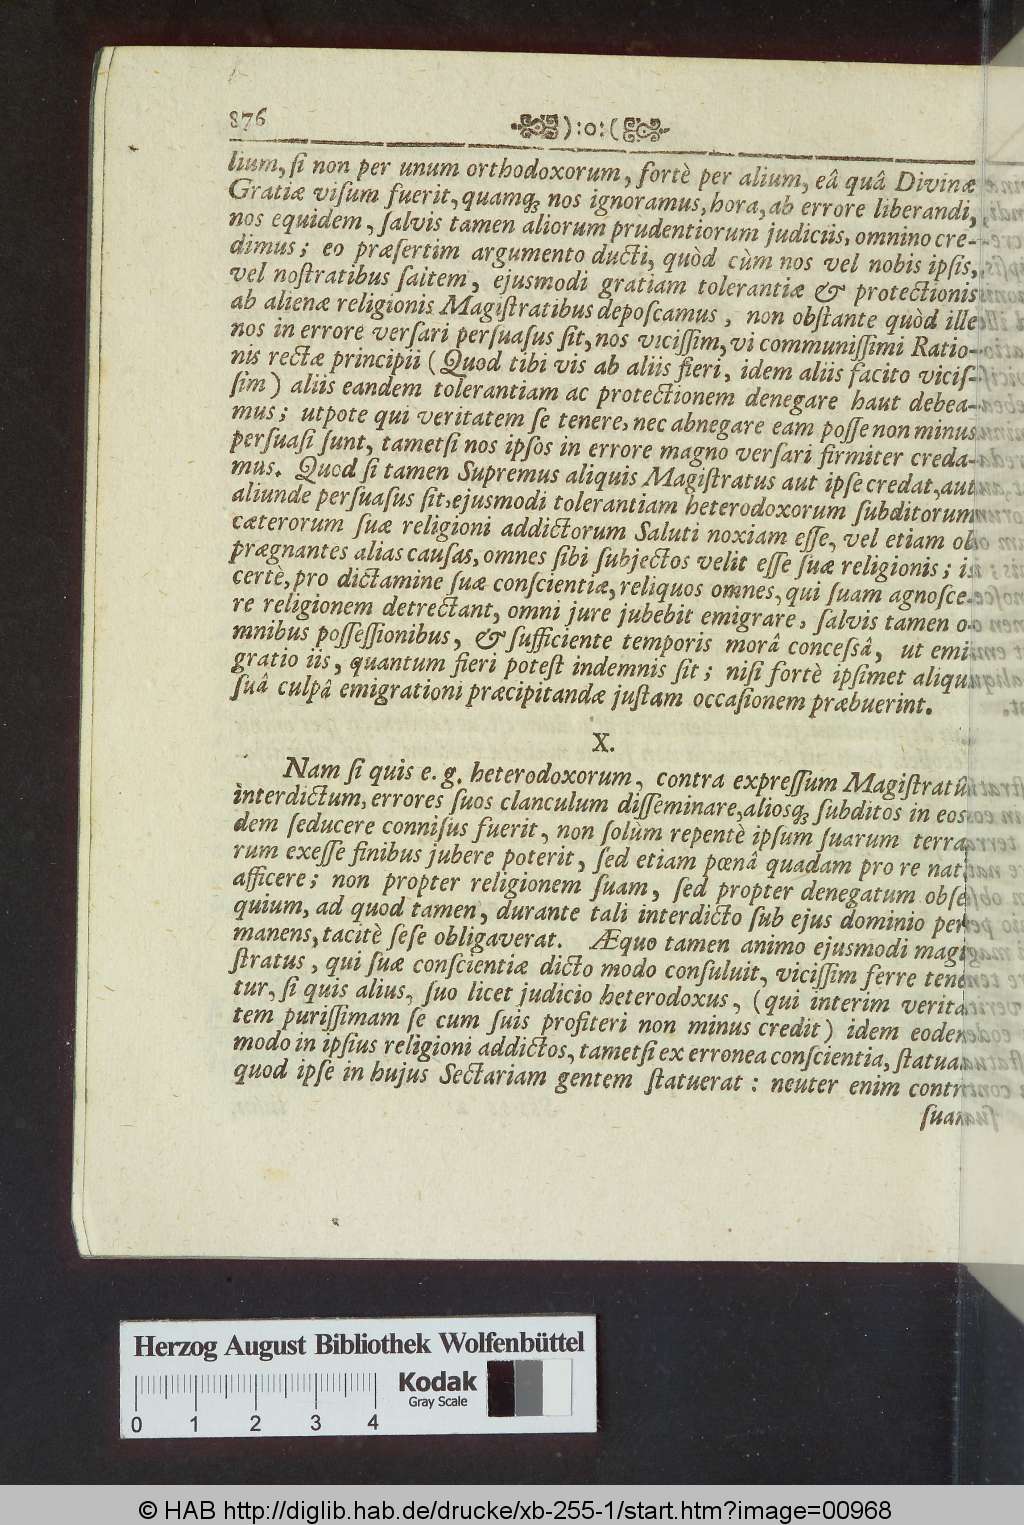 876 ):o:(
lium, ſi non per unum orthodoxorum, fortè per alium, eâ quâ Divinæ
Gratiæ viſum fuerit, quamqꝫ nos ignoramus, hora, ab errore liberandi,
nos equidem, ſalvis tamen aliorum prudentiorum judiciis, omnino cre-
dimus; eo præſertim argumento ducti, quòd cùm nos vel nobis ipſis,
vel noſtratibus ſaltem, ejusmodi gratiam tolerantiæ & protectionis
ab alienæ religionis Magiſtratibus depoſcamus, non obſtante quòd ille
nos in errore verſari perſuaſus ſit, nos viciſſim, vi communiſſimi Ratio-
nis rectæ principii (Quod tibi vis ab aliis fieri, idem aliis facito viciſ-
ſim) aliis eandem tolerantiam ac protectionem denegare haut debea-
mus; utpote qui veritatem ſe tenere, nec abnegare eam poſſe non minus
perſuaſi ſunt, tametſi nos ipſos in errore magno verſari firmiter creda-
mus. Quod ſi tamen Supremus aliquis Magiſtratus aut ipſe credat, aut
aliunde perſuaſus ſit, ejusmodi tolerantiam heterodoxorum ſubditorum
cæterorum ſuæ religioni addictorum Saluti noxiam eſſe, vel etiam ob
prægnantes alias cauſas, omnes ſibi ſubjectos velit eſſe ſuæ religionis; is
certè, pro dictamine ſuæ conſcientiæ, reliquos omnes, qui ſuam agnoſce-
re religionem detrectant, omni jure jubebit emigrare, ſalvis tamen o-
mnibus poſſeſſionibus, & ſufficiente temporis morâ conceſsâ, ut emi-
gratio iis, quantum fieri poteſt indemnis ſit; niſi fortè ipſimet aliqua
ſuâ culpâ emigrationi præcipitandæ juſtam occaſionem præbuerint.
X.
Nam ſi quis e. g. heterodoxorum, contra expreſſum Magiſtratûs
interdictum, errores ſuos clanculum diſſeminare, aliosqꝫ ſubditos in eos-
dem ſeducere conniſus fuerit, non ſolùm repentè ipſum ſuarum terra-
rum exeſſe finibus jubere poterit, ſed etiam pœnâ quadam pro re nata
afficere; non propter religionem ſuam, ſed propter denegatum obſe-
quium, ad quod tamen, durante tali interdicto ſub ejus dominio per-
manens, tacitè ſeſe obligaverat. Æquo tamen animo ejusmodi magi-
ſtratus, qui ſuæ conſcientiæ dicto modo conſuluit, viciſſim ferre tene-
tur, ſi quis alius, ſuo licet judicio heterodoxus, (qui interim verita-
tem puriſſimam ſe cum ſuis profiteri non minus credit) idem eodem
modo in ipſius religioni addictos, tametſi ex erronea conſcientia, ſtatuat
quod ipſe in hujus Sectariam gentem ſtatuerat: neuter enim contra
ſuam
Herzog August Bibliothek Wolfenbüttel
Kodak
Gray Scale
0 1 2 3 4
© HAB http://diglib.hab.de/drucke/xb-255-1/start.htm?image=00968